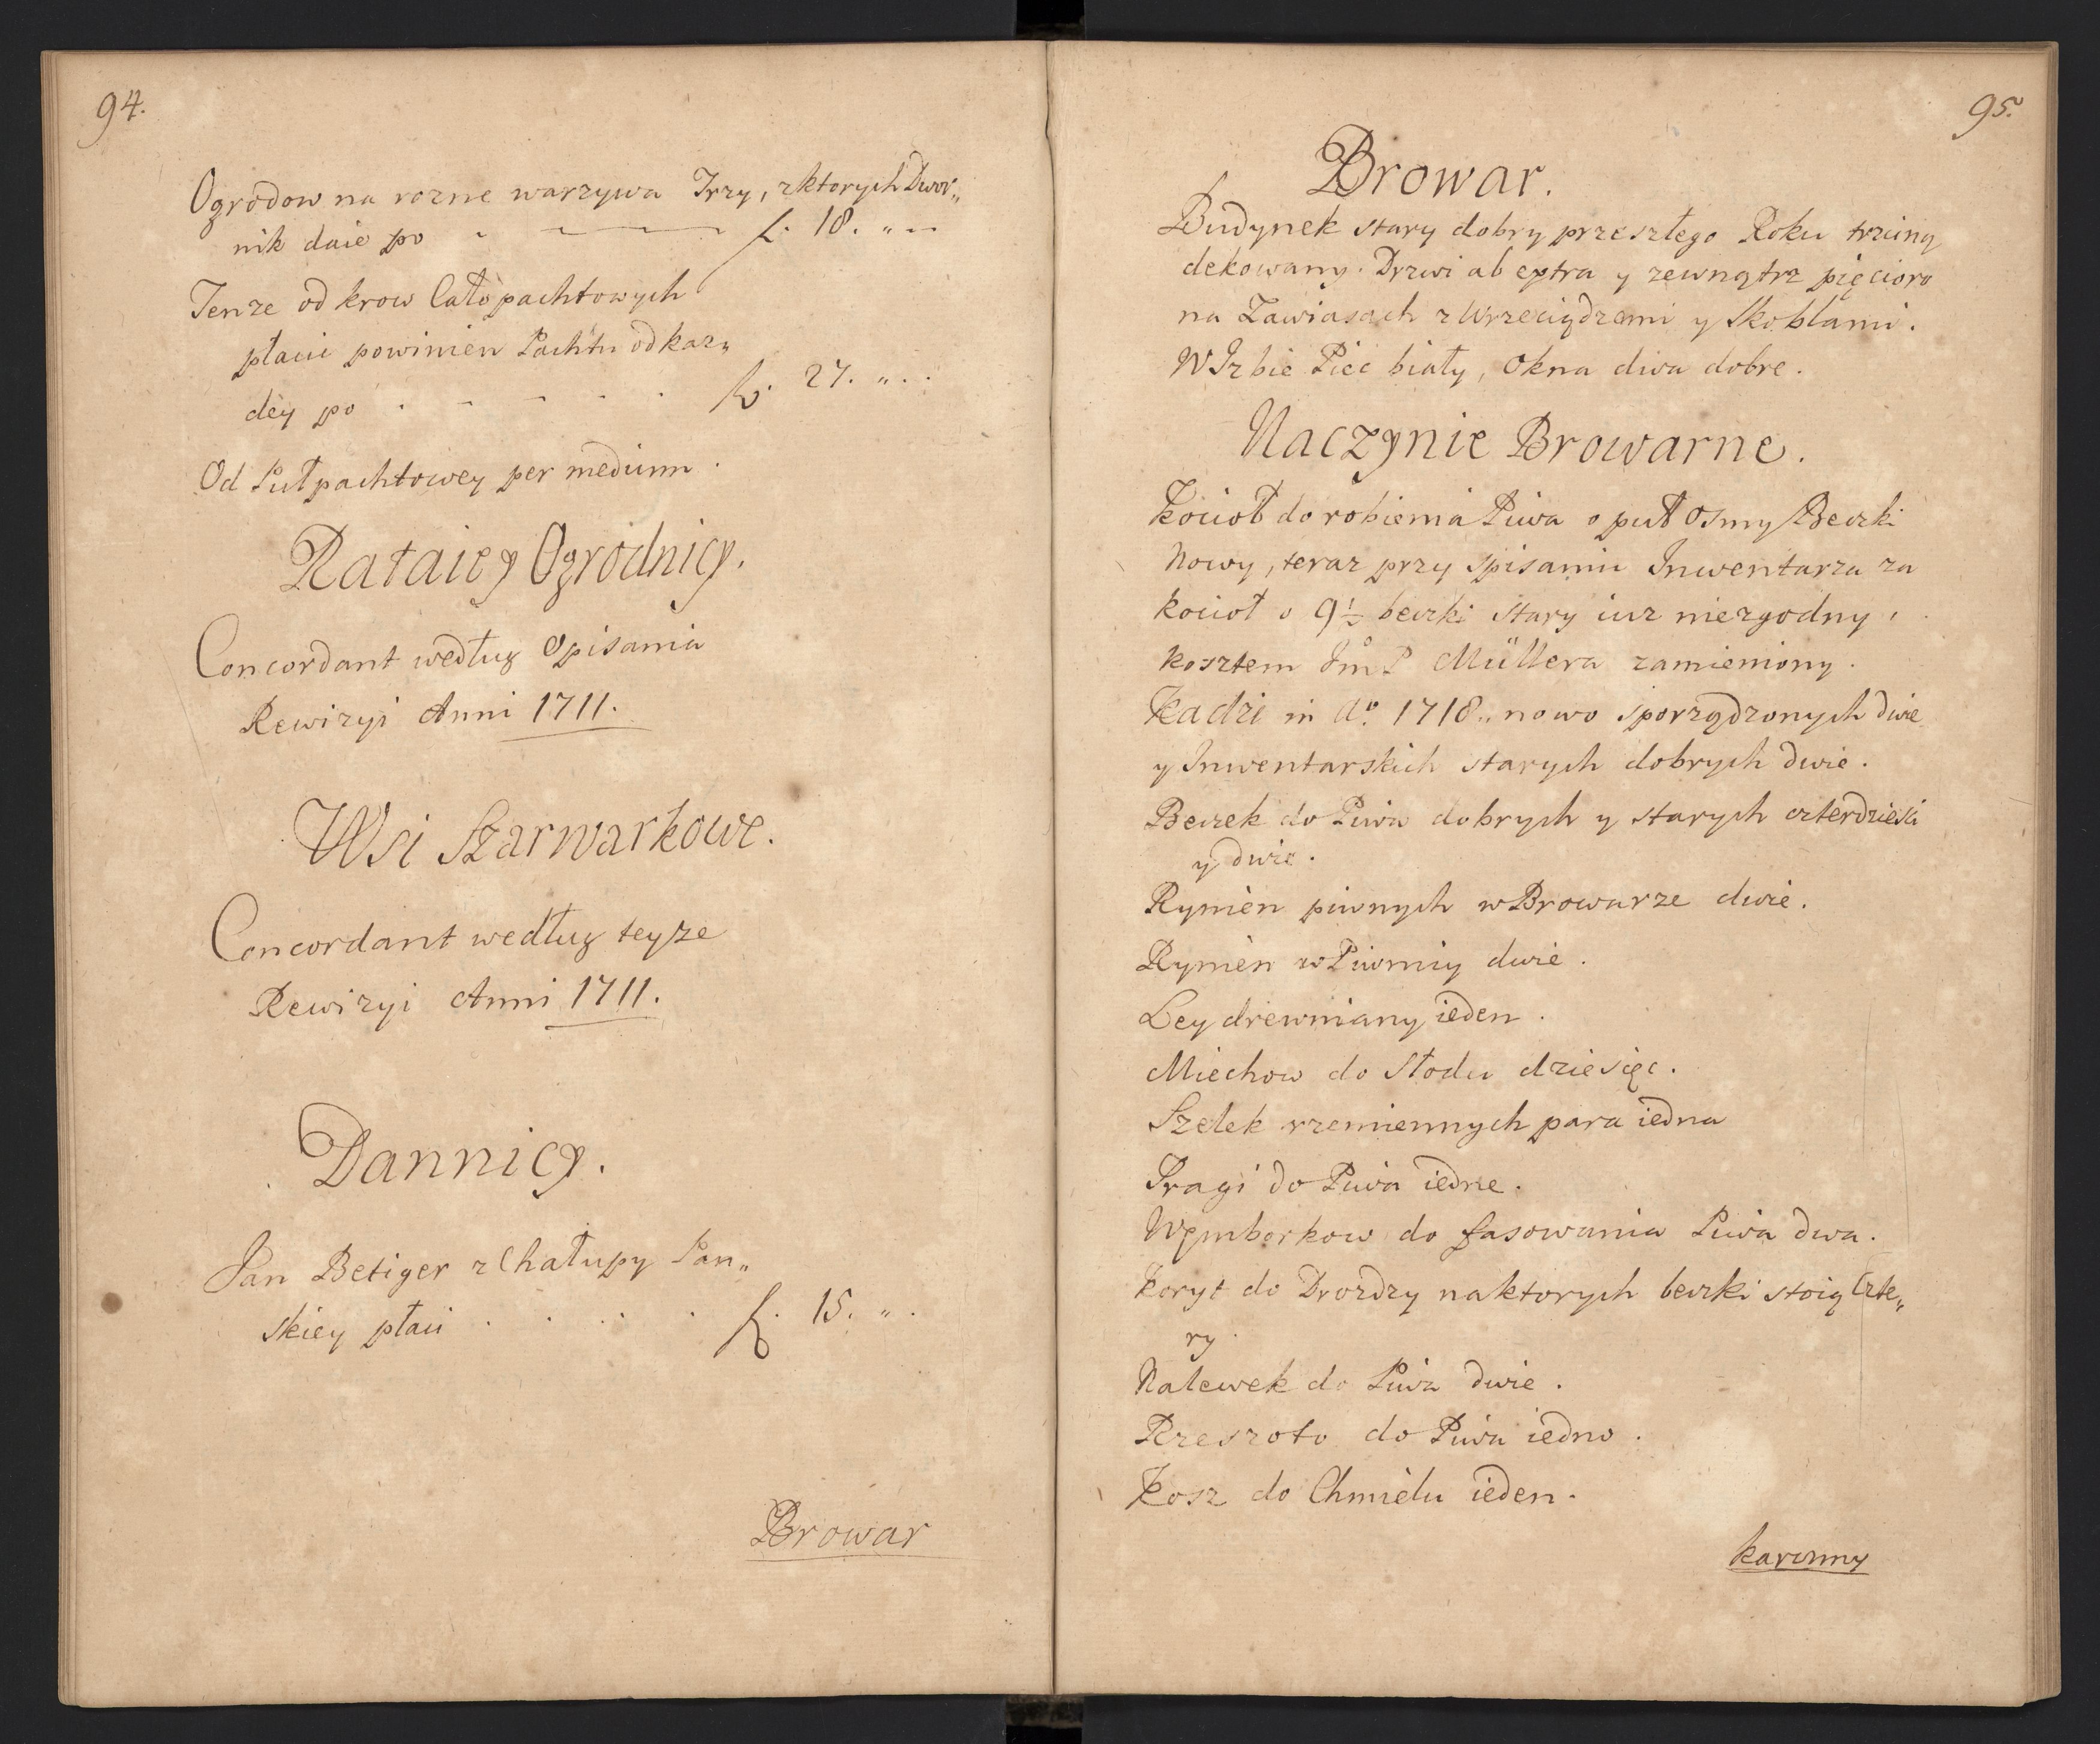 94.
Ogrodow na rozne warzywa Trzy, z ktorych Dwor„
nik daie po - - - - f. 18. „ --
Tenze od krow Całopachtowych
płacic powinien Pachtu od kaz„
dey po . - - - . . f. 27. „ . .
Od Pułpachtowey per medium.
Rataie y Ogrodnicy.
Concordant według Opisania
Rewizyi Anni 1711.
Wsi Szarwarkowe.
Concordant według teyze
Rewizyi Anni 1711.
Dannicy.
Jan Betiger z Chałupy Pan„
skiey płaci . . . . . f. 15. „ .
Browar
95.
Browar.
Budynek stary dobry przeszłego Roku trzciną
dekowany. Drzwi ab extra y zewnątrz pięcioro
na Zawiasach z Wrzeciądzami y Skoblami.
W Izbie Piec biały, okna dwa dobre.
Naczynie Browarne.
Kocioł do robienia Piwa o puł osmy Beczki
Nowy, teraz przy spisaniu Inwentarza za
kocioł o 9½ beczki stary iuz niezgodny,
kosztem Jmo P Müllera zamieniony.
Kadzi in Ao. 1718 „ nowo sporządzonych dwie
y Inwentarskich starych dobrych dwie.
Beczek do Piwa dobrych y starych czterdziesci
y dwie.
Rynien piwnych w Browarze dwie.
Rynien w Piwnicy dwie.
Ley drewniany ieden.
Miechow do Słodu dziesięc.
Szelek rzemiennych para iedna
Tragi do Piwa iedne.
Węmborkow do fasowania Piwa dwa.
Koryt do Drozdzy na ktorych beczki stoią Czte„
ry.
Nalewek do Piwa dwie.
Rzeszoto do Piwa iedno.
Kosz do Chmielu ieden.
karczmy